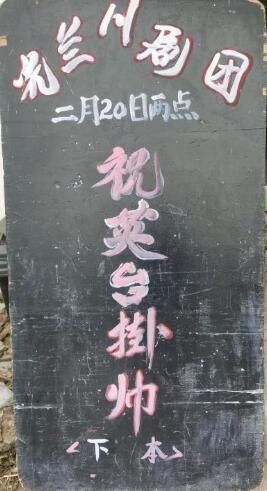 兰川剧团
二月20日两点
祝英台掛帅
<下本>